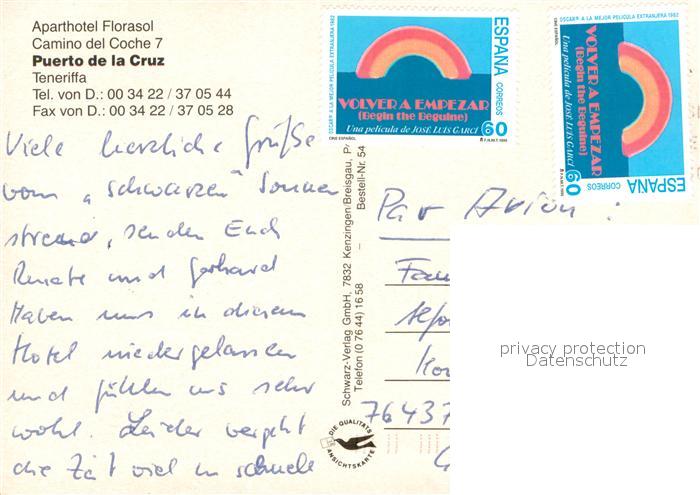 Aparthotel Florasol
Camino del Coche 7
Puerto de la Cruz
Teneriffa
Tel. von D.: 00 34 22 / 37 05 44
Fax von D.: 00 34 22 / 37 05 28
Viele herzliche Grüße
vom "schwarzen" Sonnen
strand, senden Euch
Renate und Gerhard
Haben uns in diesem
Hotel niedergelassen
und fühlen uns sehr
wohl. Leider vergeht
die Zeit viel zu schnell
Schwarz-Verlag GmbH, 7832 Kenzingen/Breisgau,
Telefon (0 76 44) 16 58
Bestell-Nr. 54
DIE QUALITÄTS
ANSICHTSKARTE
OSCAR A LA MEJOR PELICULA EXTRANJERA 1982
ESPAÑA
CORREOS
60
VOLVER A EMPEZAR
(Begin the Beguine)
Una película de JOSÉ LUIS GARCI
CINE ESPAÑOL
OSCAR A LA MEJOR PELICULA EXTRANJERA 1982
ESPAÑA
CORREOS
60
VOLVER A EMPEZAR
(Begin the Beguine)
Una película de JOSÉ LUIS GARCI
CINE ESPAÑOL
Par Avion:
Fam
76437
privacy protection
Datenschutz